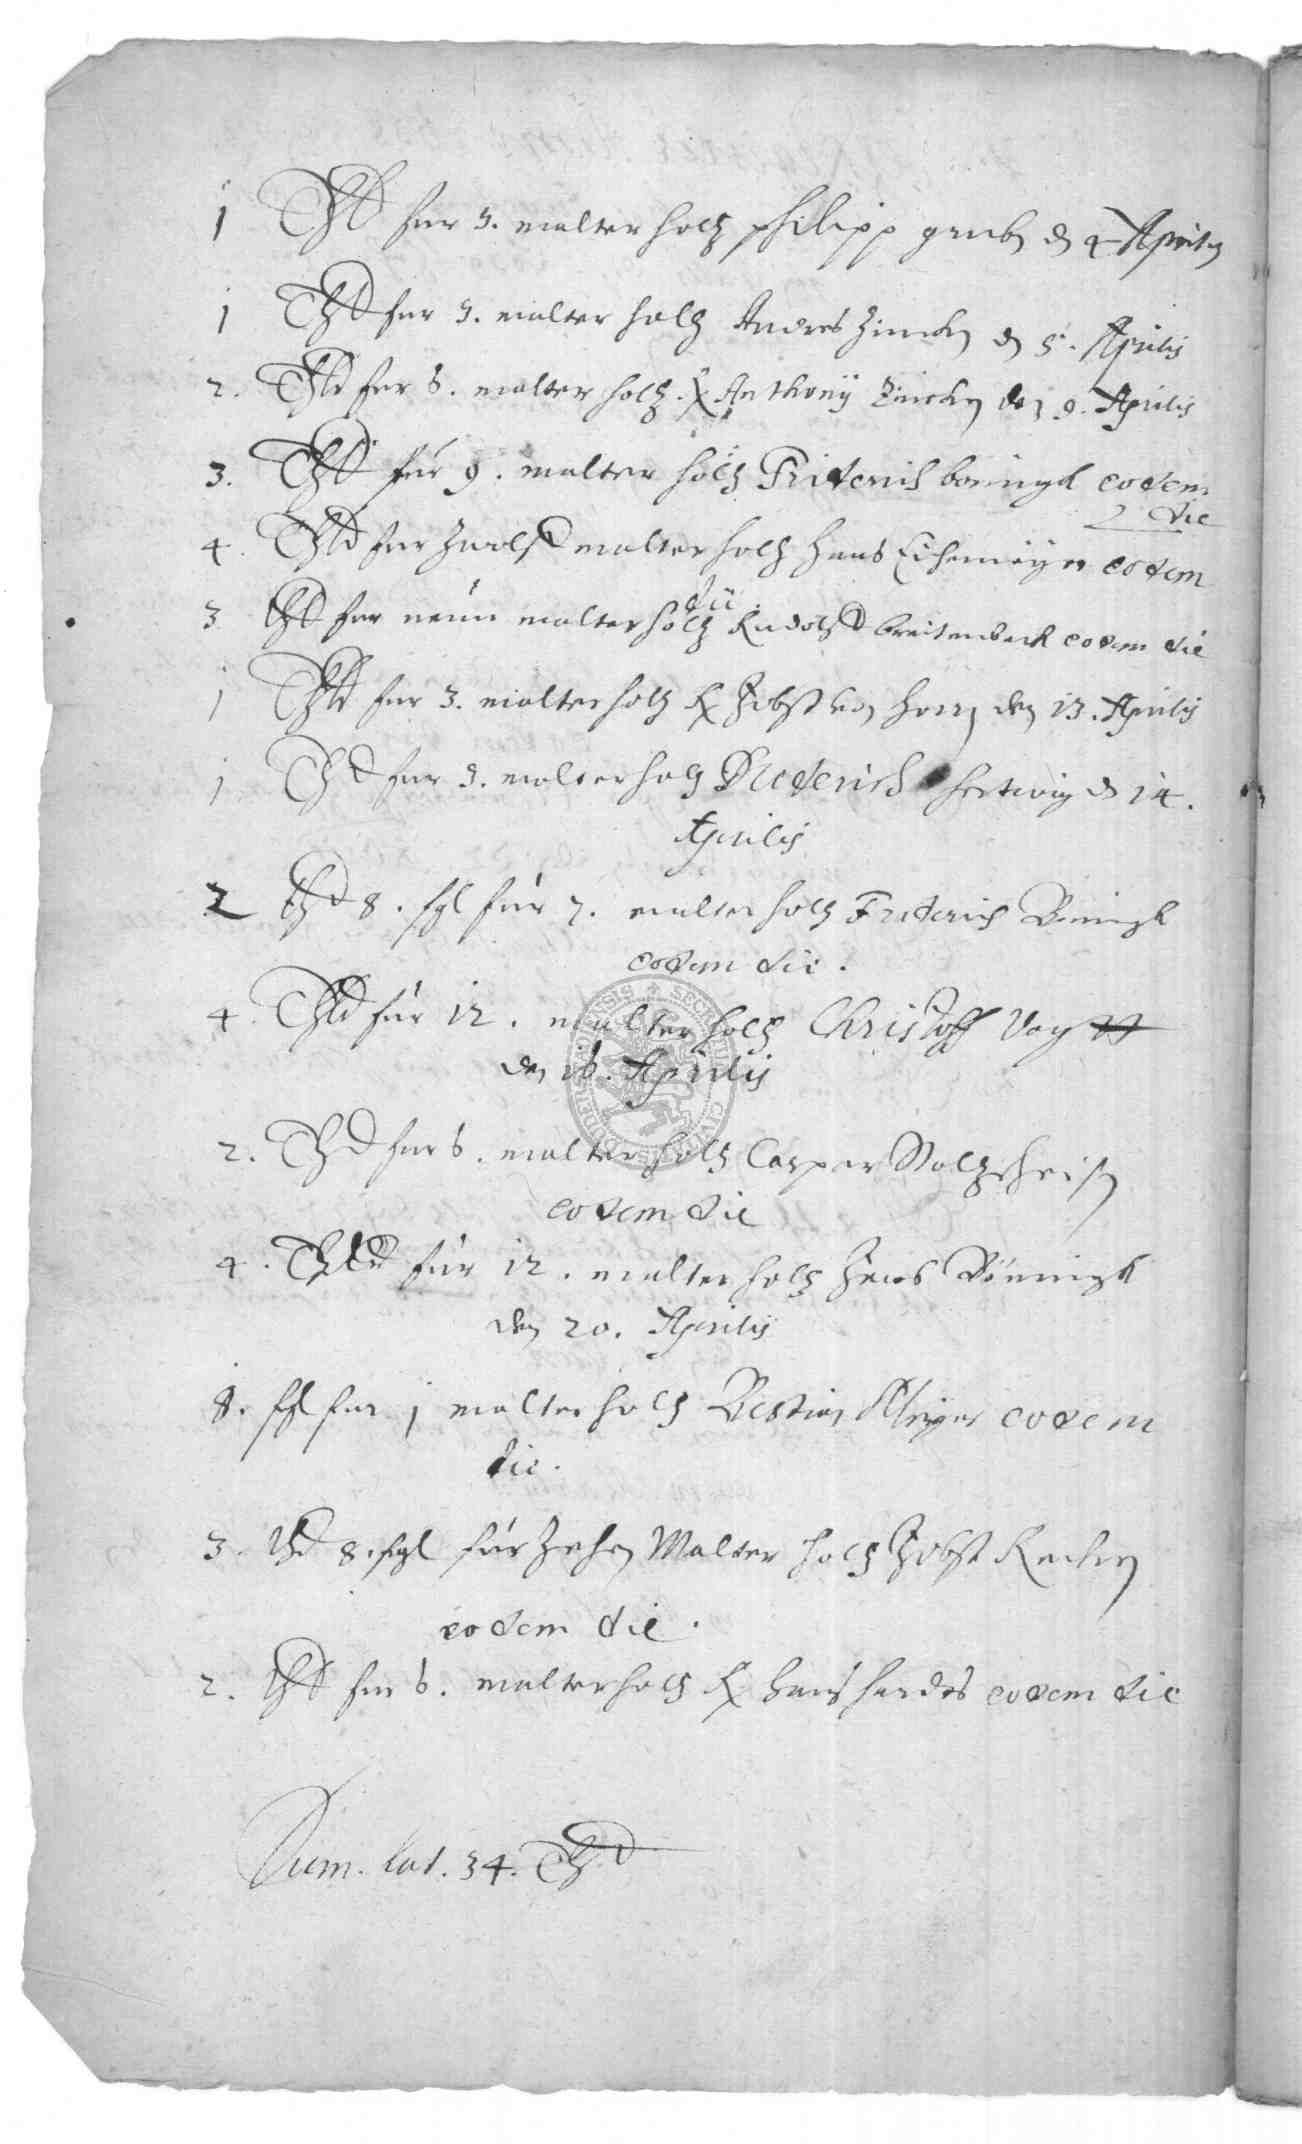 1 Thl fur 3. malter holtz philipp gruben d 4 Aprilis
1 Thl fur 3. malter holtz Andres Zincken d 5. Aprilis
2. Thl fur 6. malter holtz. Anthonÿ Zincken den 9. Aprilis
3. Thl für 9. malter holtz Friderich böningk eodem
die
4. Thl fur zwolff malter holtz Hans Eichemeÿer eodem
die.
3 Thl fur neun malter holtz Rudolff breitenbach eodem die
1 Thl fur 3. malter holtz Jobst von Horn den 13. Aprilis
1 Thl fur 3. malter holtz Diederich hertwig d 14.
Aprilis
2 Thl 8. sgl für 7. malter holtz Frederich Böningk
eodem die.
4. Thl für 12. malter holtz Christoff Vogtt
den 16. Aprilis
2. Thl fur 6. malter holtz Casper
eodem die
4. Thl für 12. malter holtz Hans Böningk
den 20. Aprilis
8. sgl fur 1 malter holtz Bestian Meÿer eodem
die.
3. Thl 8. sgl für Zehen Malter holtz Jobst
eodem die.
2. Thl fur 6. malter holtz Hans eodem die
Sum. lat. 34. Thl
SECRETUM CIVITATIS